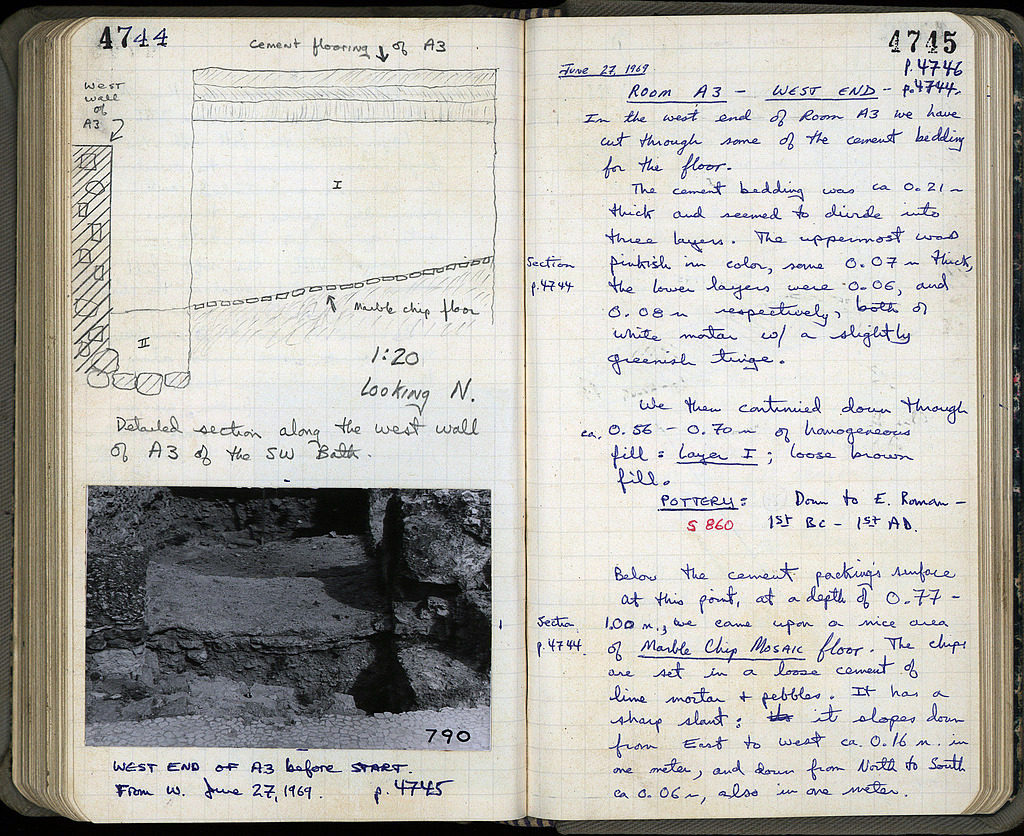 4744
cement flooring of A3
West
wall
of
A3
I
Marble chip floor
II
1:20
Looking N.
Detailed section along the west wall
of A3 of the SW Bath.
790
WEST END OF A3 before START.
From W. June 27, 1969. p. 4745
4745
June 27, 1969
p. 4746
ROOM A3 - WEST END - p. 4744.
In the west end of Room A3 we have
cut through some of the cement bedding
for the floor.
The cement bedding was ca 0.21 m
thick and seemed to divide into
three layers. The uppermost was
Section
pinkish in color, some 0.07 m thick,
p. 4744
the lower layers were 0.06, and
0.08 m respectively, both of
white mortar w/ a slightly
greenish tinge.
We then continued down through
ca. 0.56 - 0.70 m of homogeneous
fill : Layer I ; loose brown
fill.
POTTERY: Down to E. Roman -
S 860 1st BC - 1st AD.
Below the cement packing's surface
at this point, at a depth of 0.77 -
Section
1.00 m., we came upon a nice area
p. 4744.
of Marble Chip MOSAIC floor. The chips
are set in a loose cement of
lime mortar + pebbles. It has a
sharp slant: it slopes down
from East to West ca. 0.16 m. in
one meter, and down from North to South
ca 0.06 m, also in one meter.